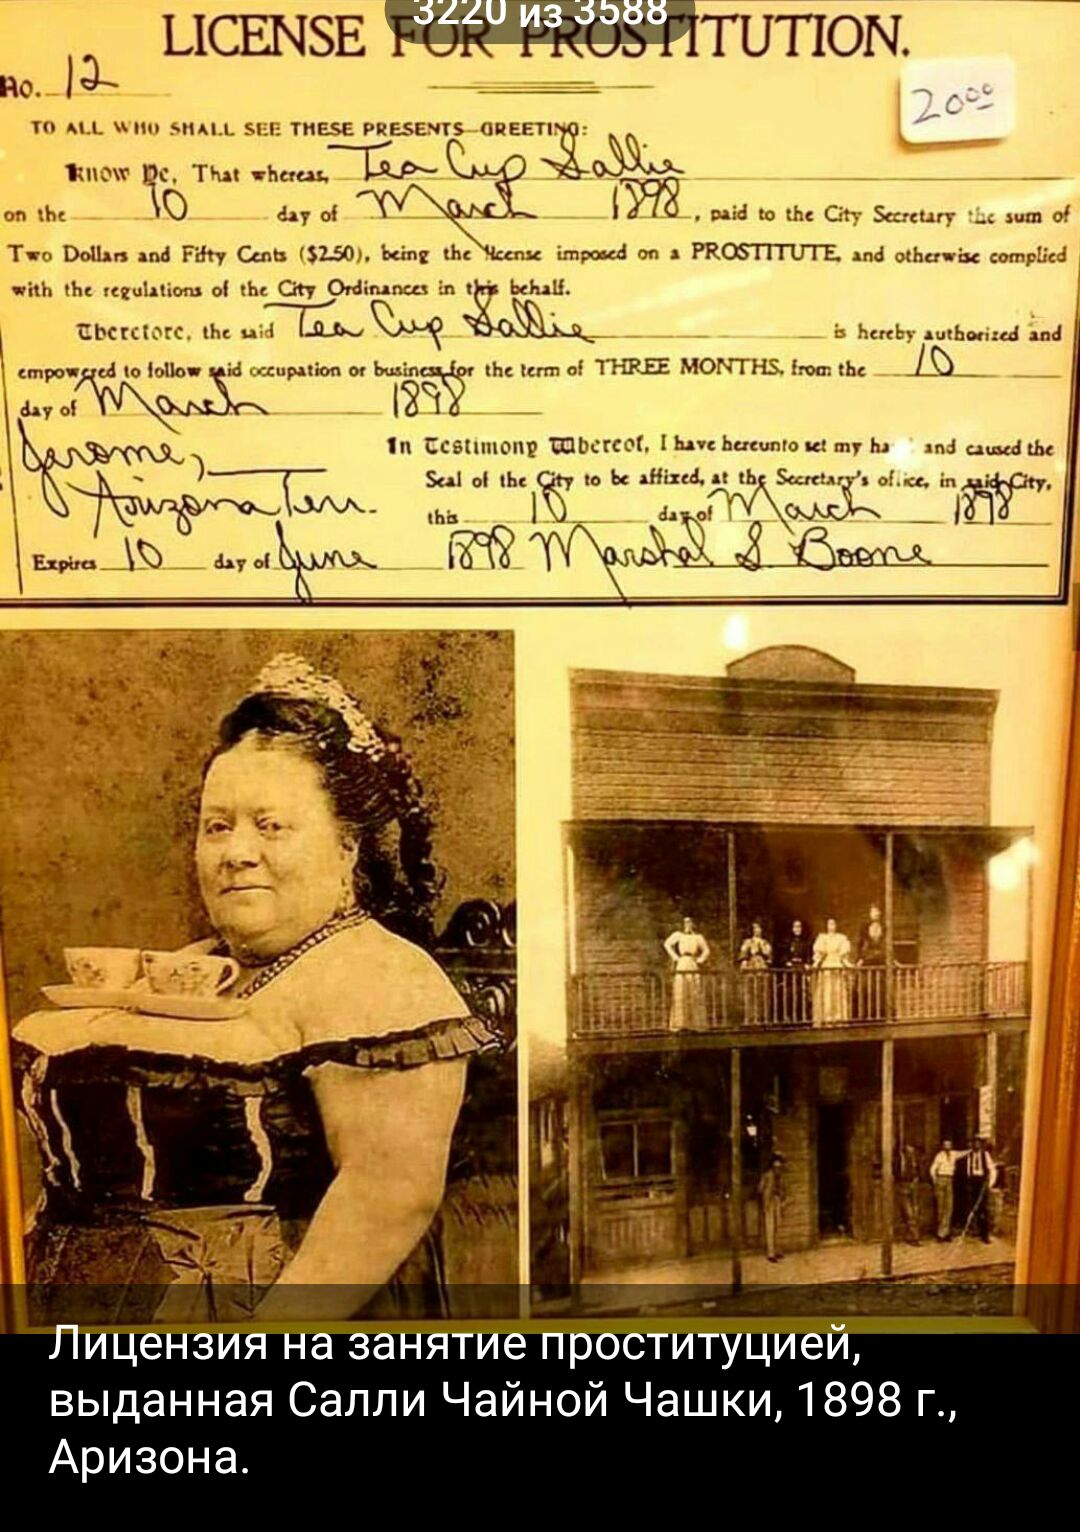 3220 из 3588
LICENSE FOR PROSTITUTION.
No. 12
20⁰⁰
TO ALL WHO SHALL SEE THESE PRESENTS—GREETING:
Know Ye, That whereas, Tea Cup Sallie
on the 10 day of March 1898, paid to the City Secretary the sum of
Two Dollars and Fifty Cents ($2.50), being the license imposed on a PROSTITUTE, and otherwise complied
with the regulations of the City Ordinances in this behalf.
Therefore, the said Tea Cup Sallie is hereby authorized and
empowered to follow said occupation or business for the term of THREE MONTHS, from the 10
day of March 1898
Jerome,
Arizona Terr.
In Testimony Whereof, I have hereunto set my and caused the
Seal of the City to be affixed, at the Secretary's office, in said City,
this 10 day of March 1898
Expires 10 day of June 1898 Marshal S Boone
Лицензия на занятие проституцией,
выданная Салли Чайной Чашки, 1898 г.,
Аризона.